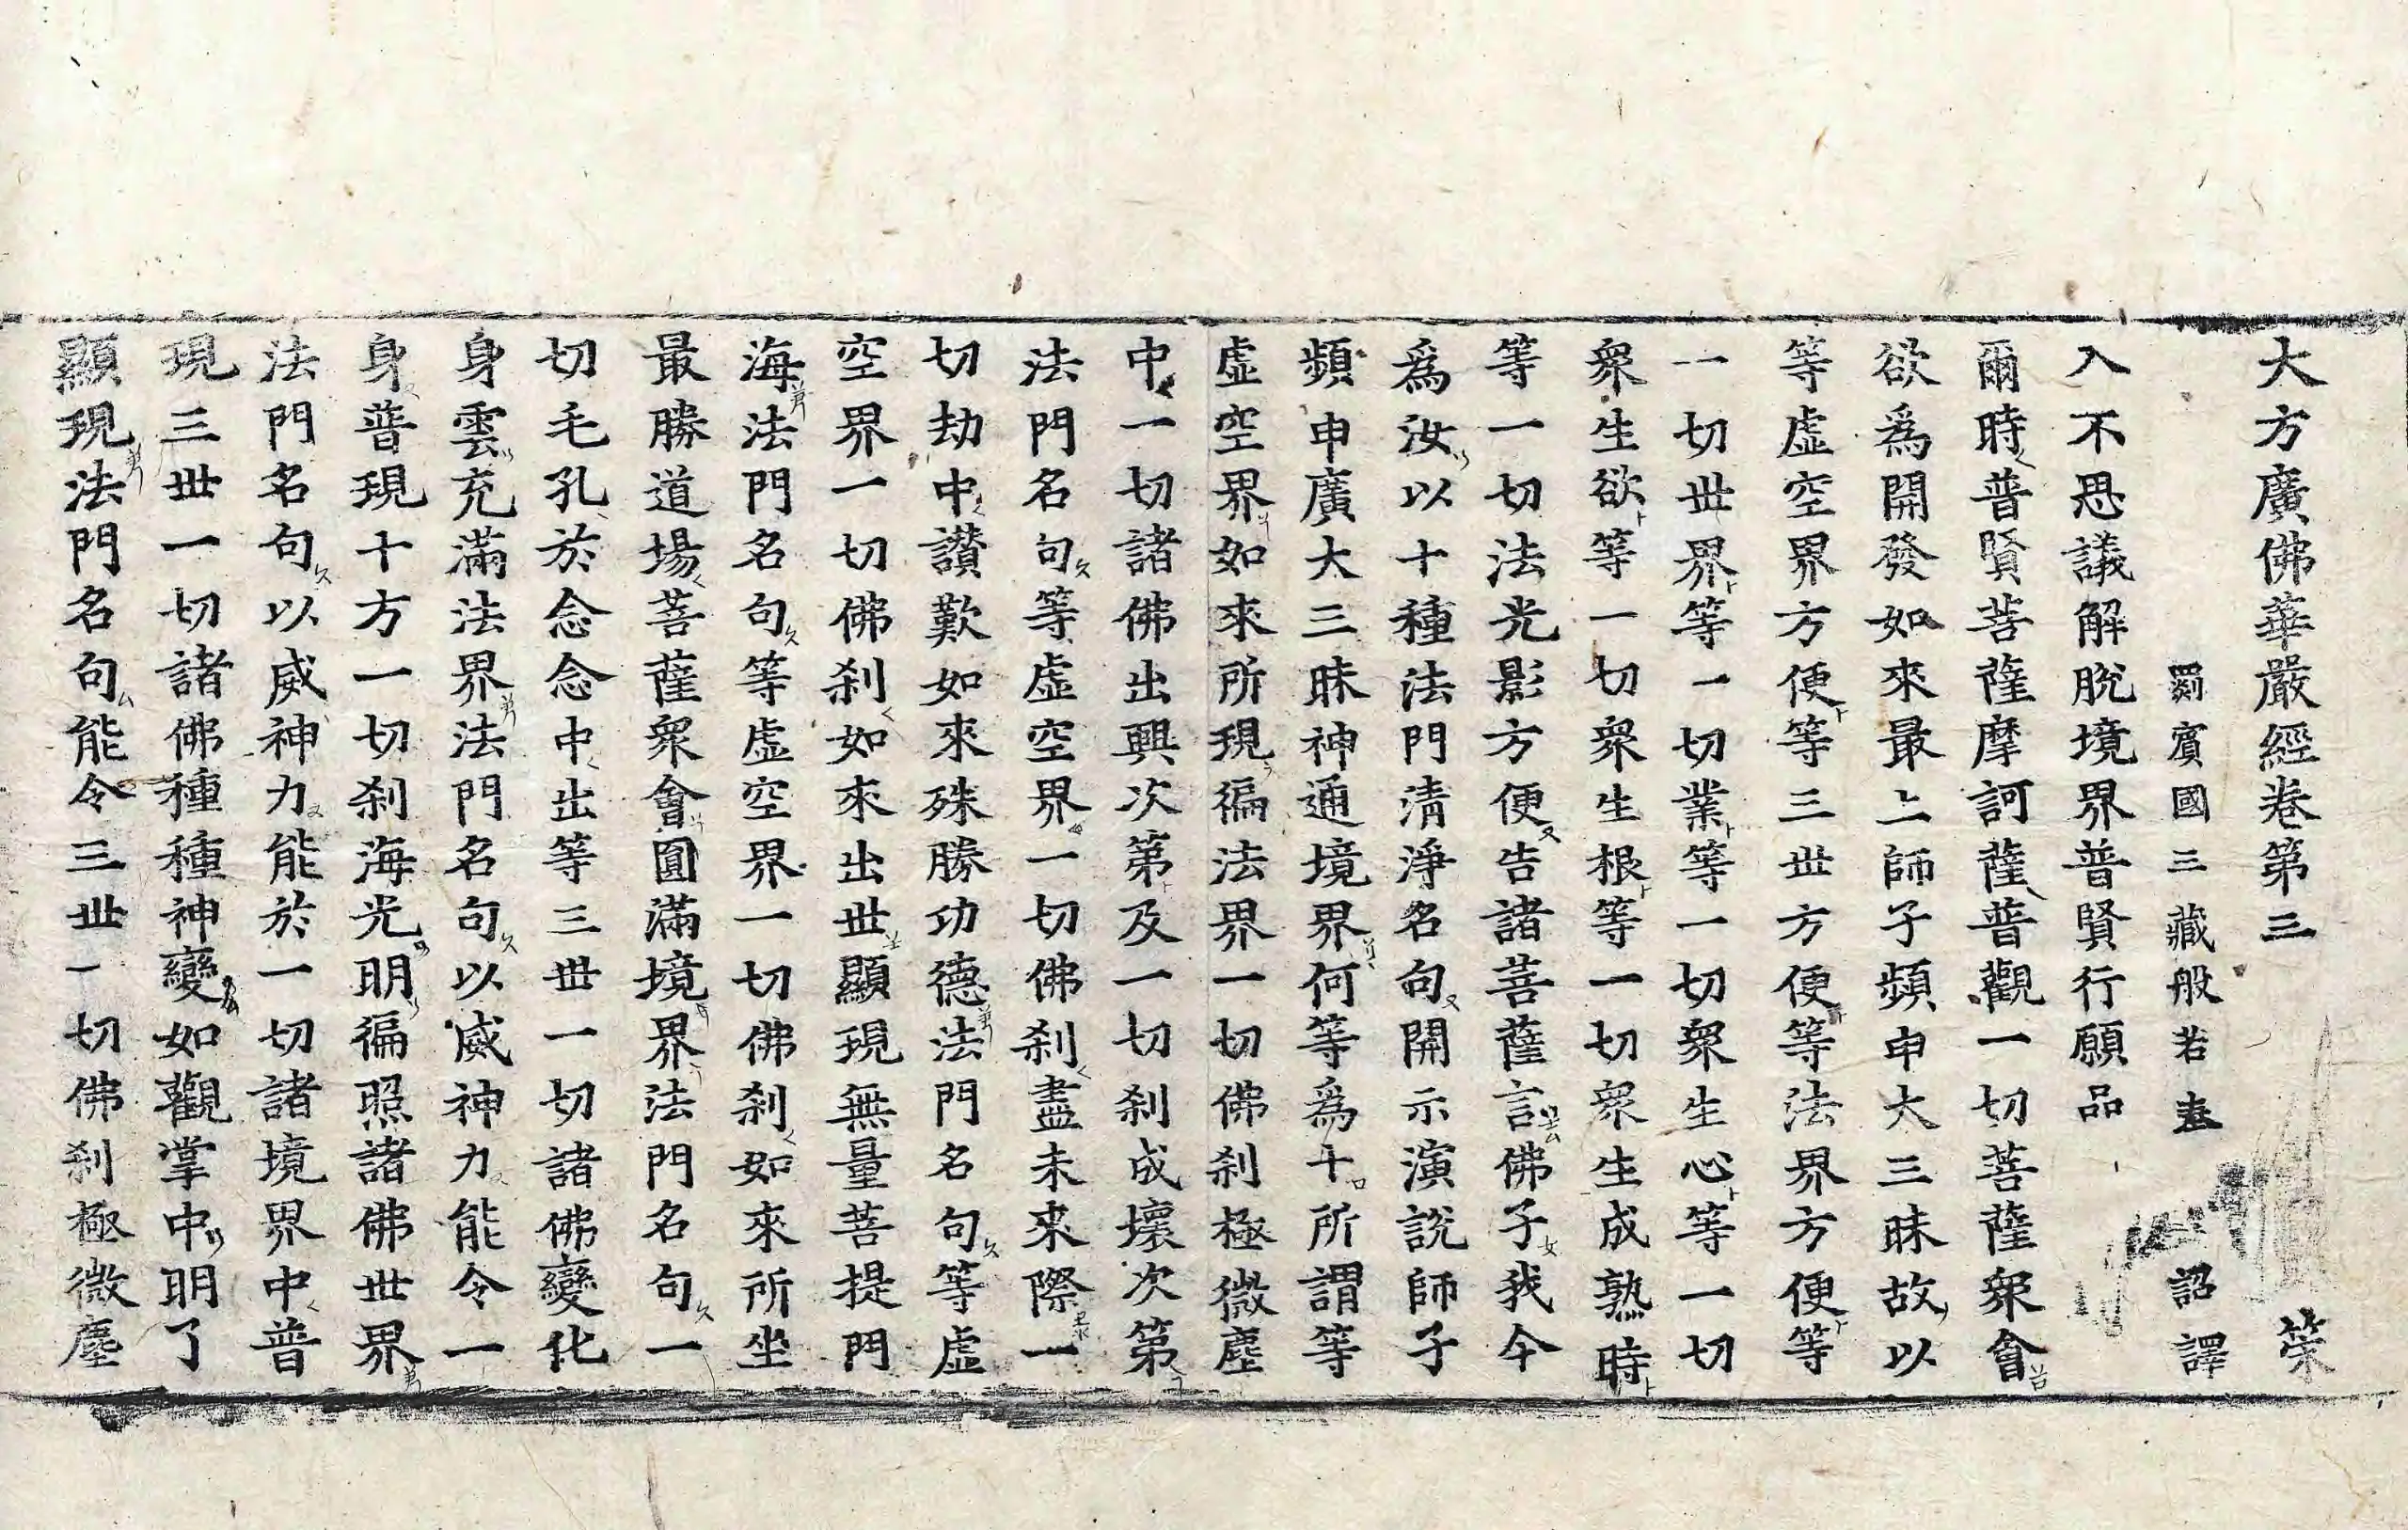 大方廣佛華嚴經卷第三 榮
罽賓國三藏般若奉 詔譯
入不思議解脫境界普賢行願品
爾時普賢菩薩摩訶薩普觀一切菩薩衆會
欲爲開發如來最上師子頻申大三昧故以
等虛空界方便等三世方便等法界方便等
一切世界等一切業等一切衆生心等一切
衆生欲等一切衆生根等一切衆生成熟時
等一切法光影方便告諸菩薩言佛子我今
爲汝以十種法門清淨名句開示演說師子
頻申廣大三昧神通境界何等爲十所謂等
虛空界如來所現徧法界一切佛刹極微塵
中一切諸佛出興次第及一切刹成壞次第
法門名句等虛空界一切佛刹盡未來際一
切劫中讃歎如來殊勝功德法門名句等虛
空界一切佛刹如來出世顯現無量菩提門
海法門名句等虛空界一切佛刹如來所坐
最勝道場菩薩衆會圓滿境界法門名句一
切毛孔於念念中出等三世一切諸佛變化
身雲充滿法界法門名句以威神力能令一
身普現十方一切刹海光明徧照諸佛世界
法門名句以威神力能於一切諸境界中普
現三世一切諸佛種種神變如觀掌中明了
顯現法門名句能令三世一切佛刹極微塵